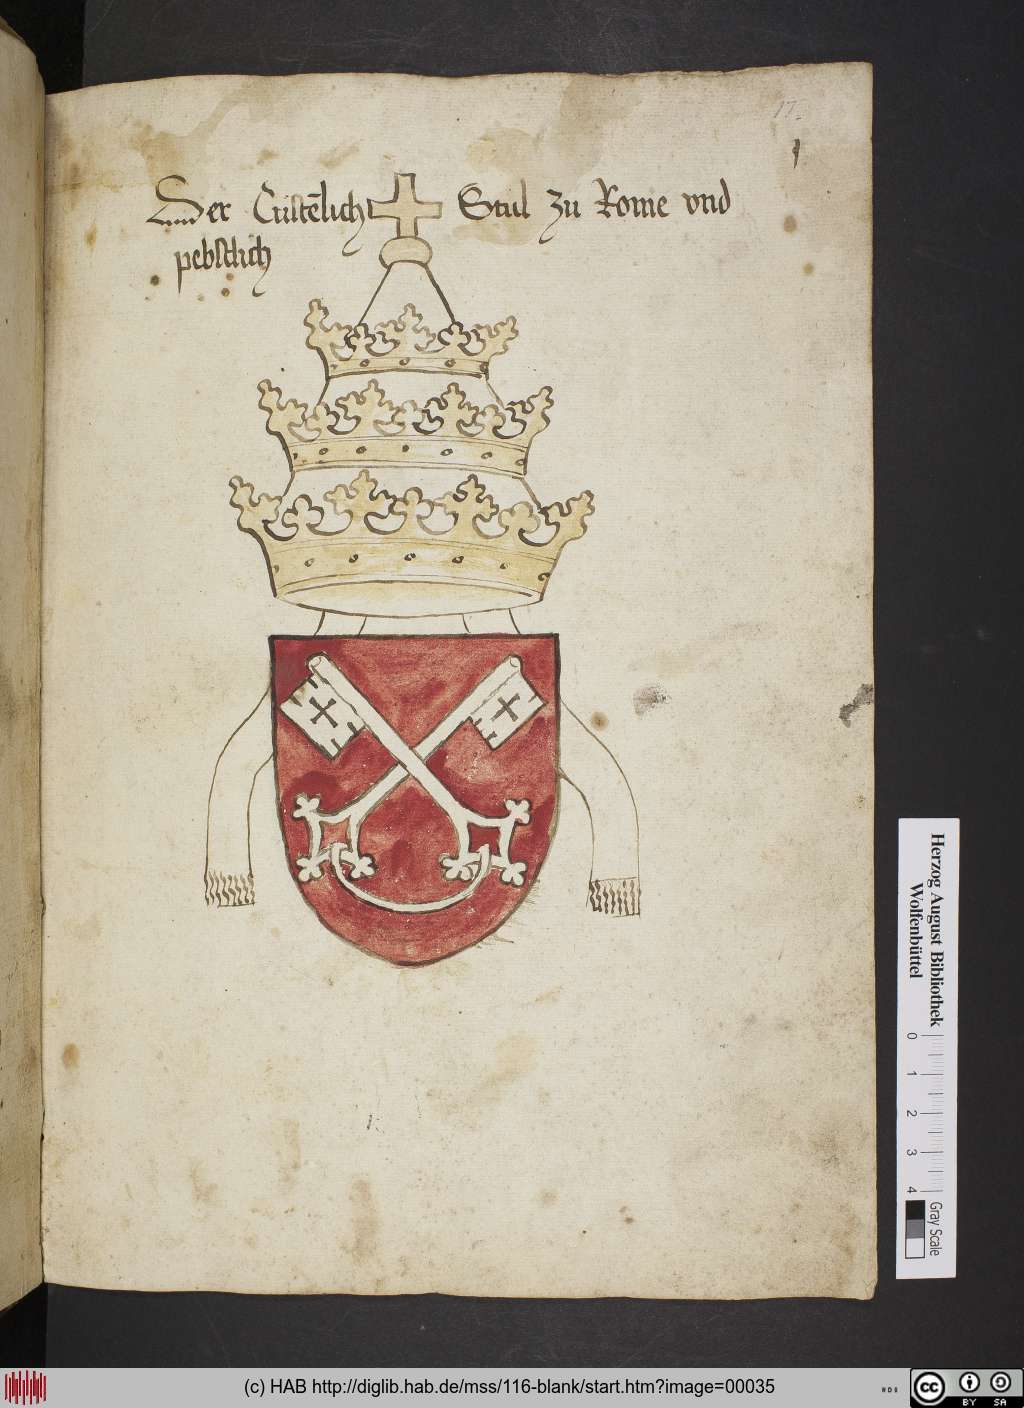 17.
1
Der Cristēlich Stul zu Rome vnd
pebstlich
Herzog August Bibliothek
Wolfenbüttel
0 1 2 3 4
Gray Scale
(c) HAB http://diglib.hab.de/mss/116-blank/start.htm?image=00035
cc BY SA